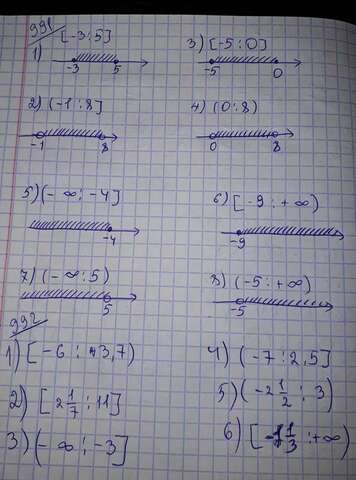 991
1) [-3:5]
-3 5
3) [-5:0]
-5 0
2) (-1:8]
-1 8
4) (0:8)
0 8
5) (-∞:-4]
-4
6) [-9:+∞)
-9
7) (-∞:5)
5
8) (-5:+∞)
-5
992
1) [-6: 3,7)
4) (-7:2,5]
2) [2 1/7:11]
5) (-2 1/2:3)
3) (-∞:-3]
6) [-1 1/3:+∞)